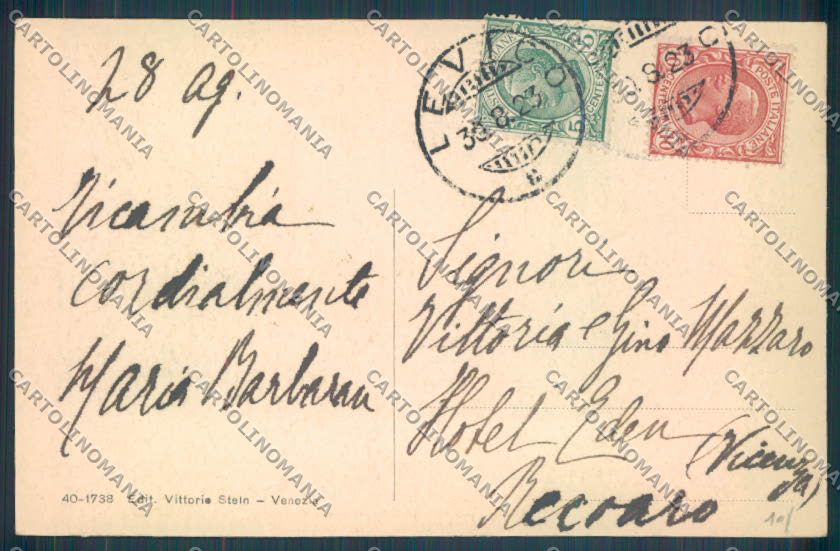 28 ag.
Ricambia
cordialmente
Maria Barbarau
40-1738 Edit. Vittorio Stein - Venezia
LEVICO
30.8.23
POSTE ITALIANE
Signori
Vittoria e Gino Mazzaro
Hotel Eden
(Vicenza)
Recoaro
10/
CARTOLINOMANIA